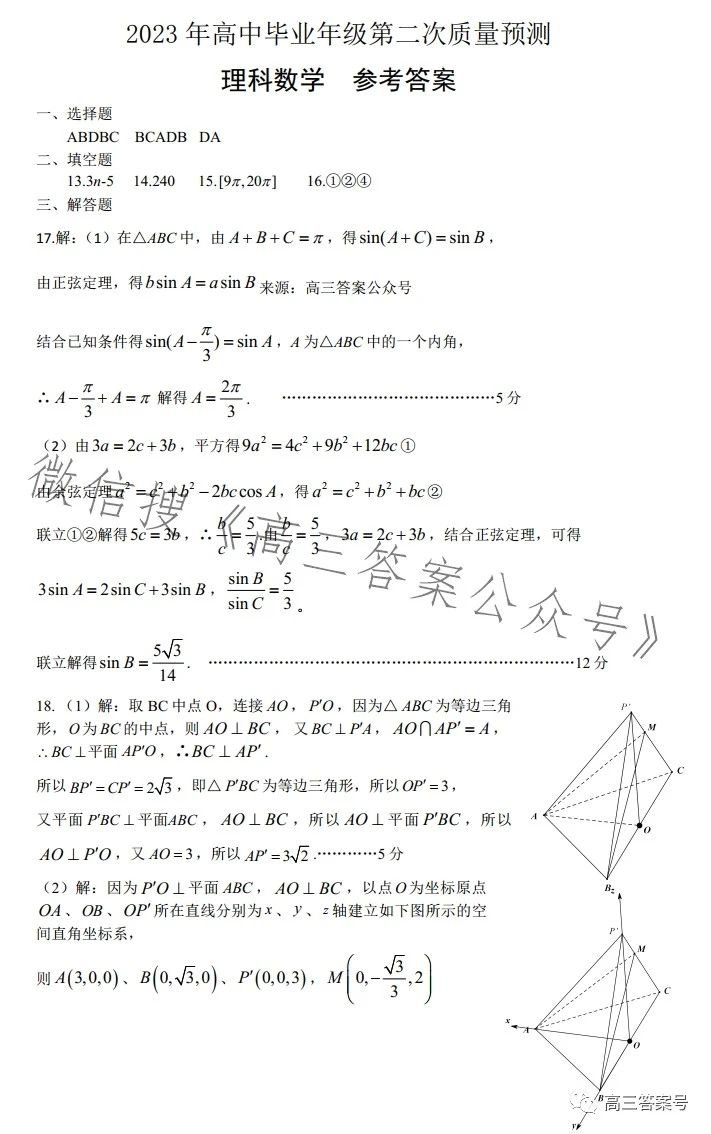 2023 年高中毕业年级第二次质量预测
理科数学 参考答案
一、选择题
ABDBC BCADB DA
二、填空题
13.3n-5 14.240 15.[9π,20π] 16.①②④
三、解答题
17.解：（1）在△ABC 中，由 A+B+C=π，得sin(A+C)=sin B，
由正弦定理，得b sin A=a sin B 来源：高三答案公众号
结合已知条件得sin(A-π/3)=sin A，A 为△ABC 中的一个内角，
∴ A-π/3+A=π 解得 A=2π/3. ……………………………………5 分
（2）由3a=2c+3b，平方得9a²=4c²+9b²+12bc ①
由余弦定理a²=c²+b²-2bc cos A，得 a²=c²+b²+bc ②
联立①②解得5c=3b，∴ b/c=5/3.由 b/c=5/3，3a=2c+3b，结合正弦定理，可得
3sin A=2sin C+3sin B，sin B/sin C=5/3。
联立解得sin B=5√3/14. ………………………………………………………………12 分
18.（1）解：取 BC 中点 O，连接 AO，P′O，因为△ ABC 为等边三角
形，O 为 BC 的中点，则 AO⊥BC，又 BC⊥P′A，AO⋂AP′=A，
∴BC⊥平面 AP′O，∴BC⊥AP′.
所以 BP′=CP′=2√3，即△ P′BC 为等边三角形，所以OP′=3，
又平面 P′BC⊥平面ABC，AO⊥BC，所以 AO⊥平面 P′BC，所以
AO⊥P′O，又 AO=3，所以 AP′=3√2.…………5 分
（2）解：因为 P′O⊥平面 ABC，AO⊥BC，以点 O 为坐标原点
OA、OB、OP′所在直线分别为 x、y、z 轴建立如下图所示的空
间直角坐标系，
则 A(3,0,0)、B(0,√3,0)、P′(0,0,3)，M(0,-√3/3,2)
P'
M
C
A
O
B
z
P'
M
C
x
A
O
B
y
微信搜《高三答案公众号》
高三答案号